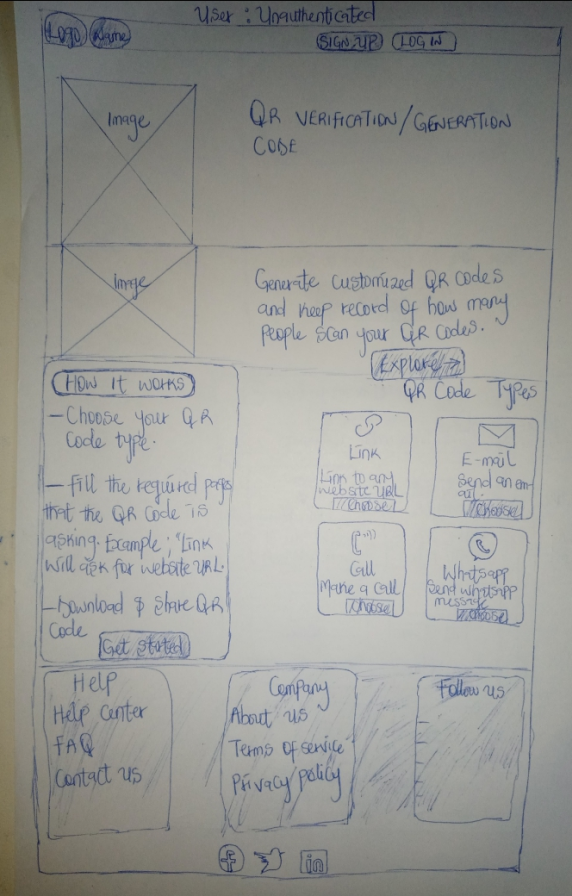 User : Unauthenticated
Logo Name SIGN UP LOG IN
Image
QR VERIFICATION/GENERATION
CODE
Image
Generate customized QR codes
and keep record of how many
people scan your QR Codes.
Explore →
How it works
QR Code Types
— Choose your QR
Code type.
— Fill the required pages
that the QR Code is
asking. Example; "Link
will ask for website URL.
— Download & Share QR
Code
Get started
Link
Link to any
website URL
Choose
E-mail
Send an em-
ail.
Choose
Call
Make a call
Choose
Whatsapp
Send whatsapp
message
Choose
Help
Help Center
FAQ
Contact us
Company
About us
Terms of service
Privacy policy
Follow us
f in